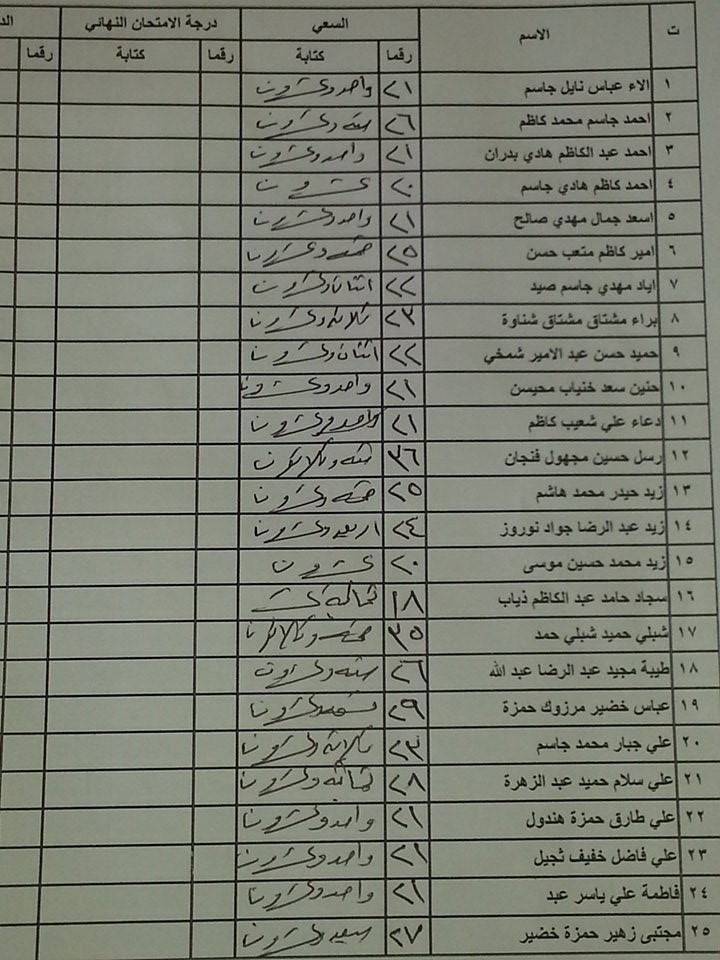 ت الاسم السعي درجة الامتحان النهائي الد
رقما كتابة رقما كتابة رقما
١ الاء عباس نايل جاسم ٢١ واحد وعشرون
٢ احمد جاسم محمد كاظم ٢٦ سته وعشرون
٣ احمد عبد الكاظم هادي بدران ٢١ واحد وعشرون
٤ احمد كاظم هادي جاسم ٢٠ عشرون
٥ اسعد جمال مهدي صالح ٢١ واحد وعشرون
٦ امير كاظم متعب حسن ٢٥ خمسه وعشرون
٧ اياد مهدي جاسم صيد ٢٢ اثنان وعشرون
٨ براء مشتاق مشتاق شناوة ٢٣ ثلاثه وعشرون
٩ حميد حسن عبد الامير شمخي ٢٢ اثنان وعشرون
١٠ حنين سعد خنياب محيسن ٢١ واحد وعشرون
١١ دعاء علي شعيب كاظم ٢١ واحد وعشرون
١٢ رسل حسين مجهول فنجان ٣٦ سته وثلاثون
١٣ زيد حيدر محمد هاشم ٢٥ خمسه وعشرون
١٤ زيد عبد الرضا جواد نوروز ٢٤ اربعه وعشرون
١٥ زيد محمد حسين موسى ٢٠ عشرون
١٦ سجاد حامد عبد الكاظم ذياب ١٨ ثمانية عشر
١٧ شبلي حميد شبلي حمد ٣٥ خمسه وثلاثون
١٨ طيبة مجيد عبد الرضا عبد الله ٢٦ سته وعشرون
١٩ عباس خضير مرزوك حمزة ٢٩ تسعه وعشرون
٢٠ علي جبار محمد جاسم ٢٣ ثلاثه وعشرون
٢١ علي سلام حميد عبد الزهرة ٢٨ ثمانيه وعشرون
٢٢ علي طارق حمزة هندول ٢١ واحد وعشرون
٢٣ علي فاضل خفيف ثجيل ٢١ واحد وعشرون
٢٤ فاطمة علي ياسر عبد ٢١ واحد وعشرون
٢٥ مجتبى زهير حمزة خضير ٢٧ سبعه وعشرون